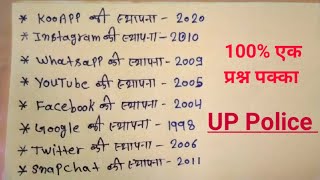 * KooAPP की स्थापना - 2020
* Instagram की स्थापना - 2010
* Whatsapp की स्थापना - 2009
* YouTube की स्थापना - 2005
* Facebook की स्थापना - 2004
* Google की स्थापना - 1998
* Twitter की स्थापना - 2006
* Snapchat की स्थापना - 2011
100% एक
प्रश्न पक्का
UP Police